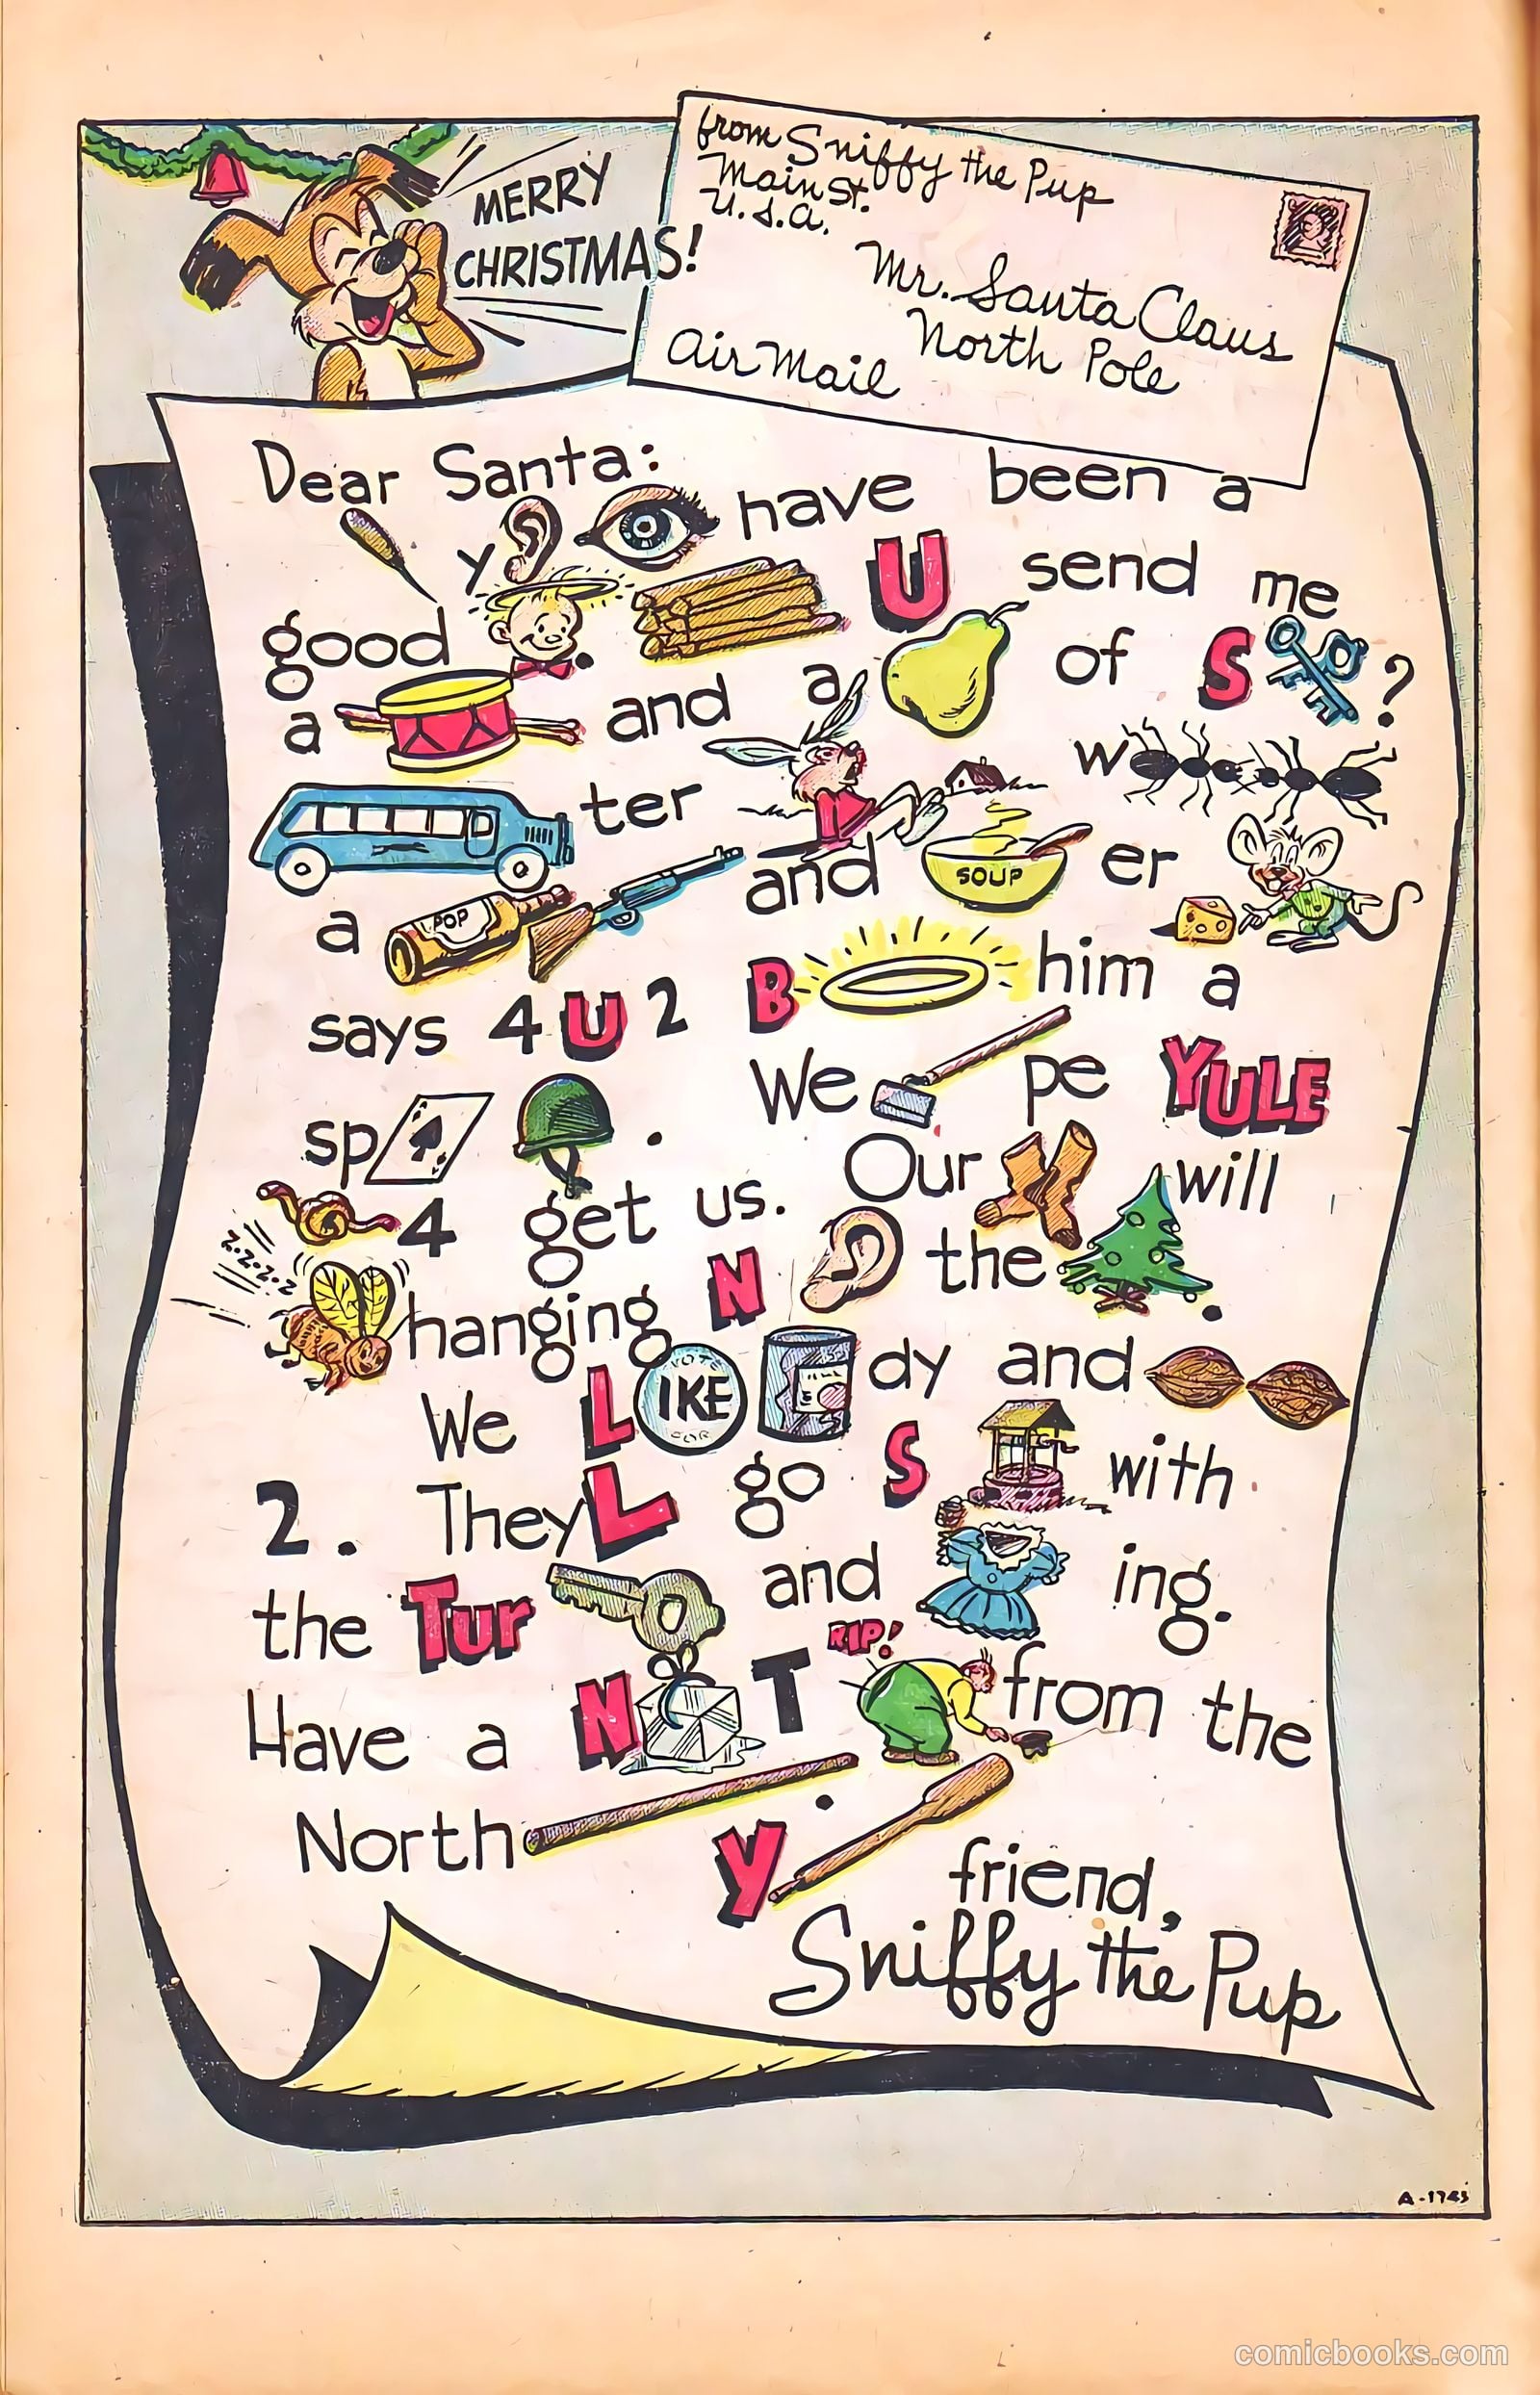 MERRY
CHRISTMAS!
from Sniffy the Pup
Main St.
U.S.A.
Mr. Santa Claus
North Pole
Air Mail
Dear Santa:
y have been a
good . U send me
a and a of S ?
ter w
a and SOUP er
POP
says 4 U 2 B him a
sp . We pe YULE
4 get us. Our will
Z-Z-Z-Z-Z
hanging N the .
We L VOTE IKE FOR dy and
2. They L go S with
the Tur and ing.
RIP!
Have a N T from the
North .
Y friend,
Sniffy the Pup
A-1743
comicbooks.com